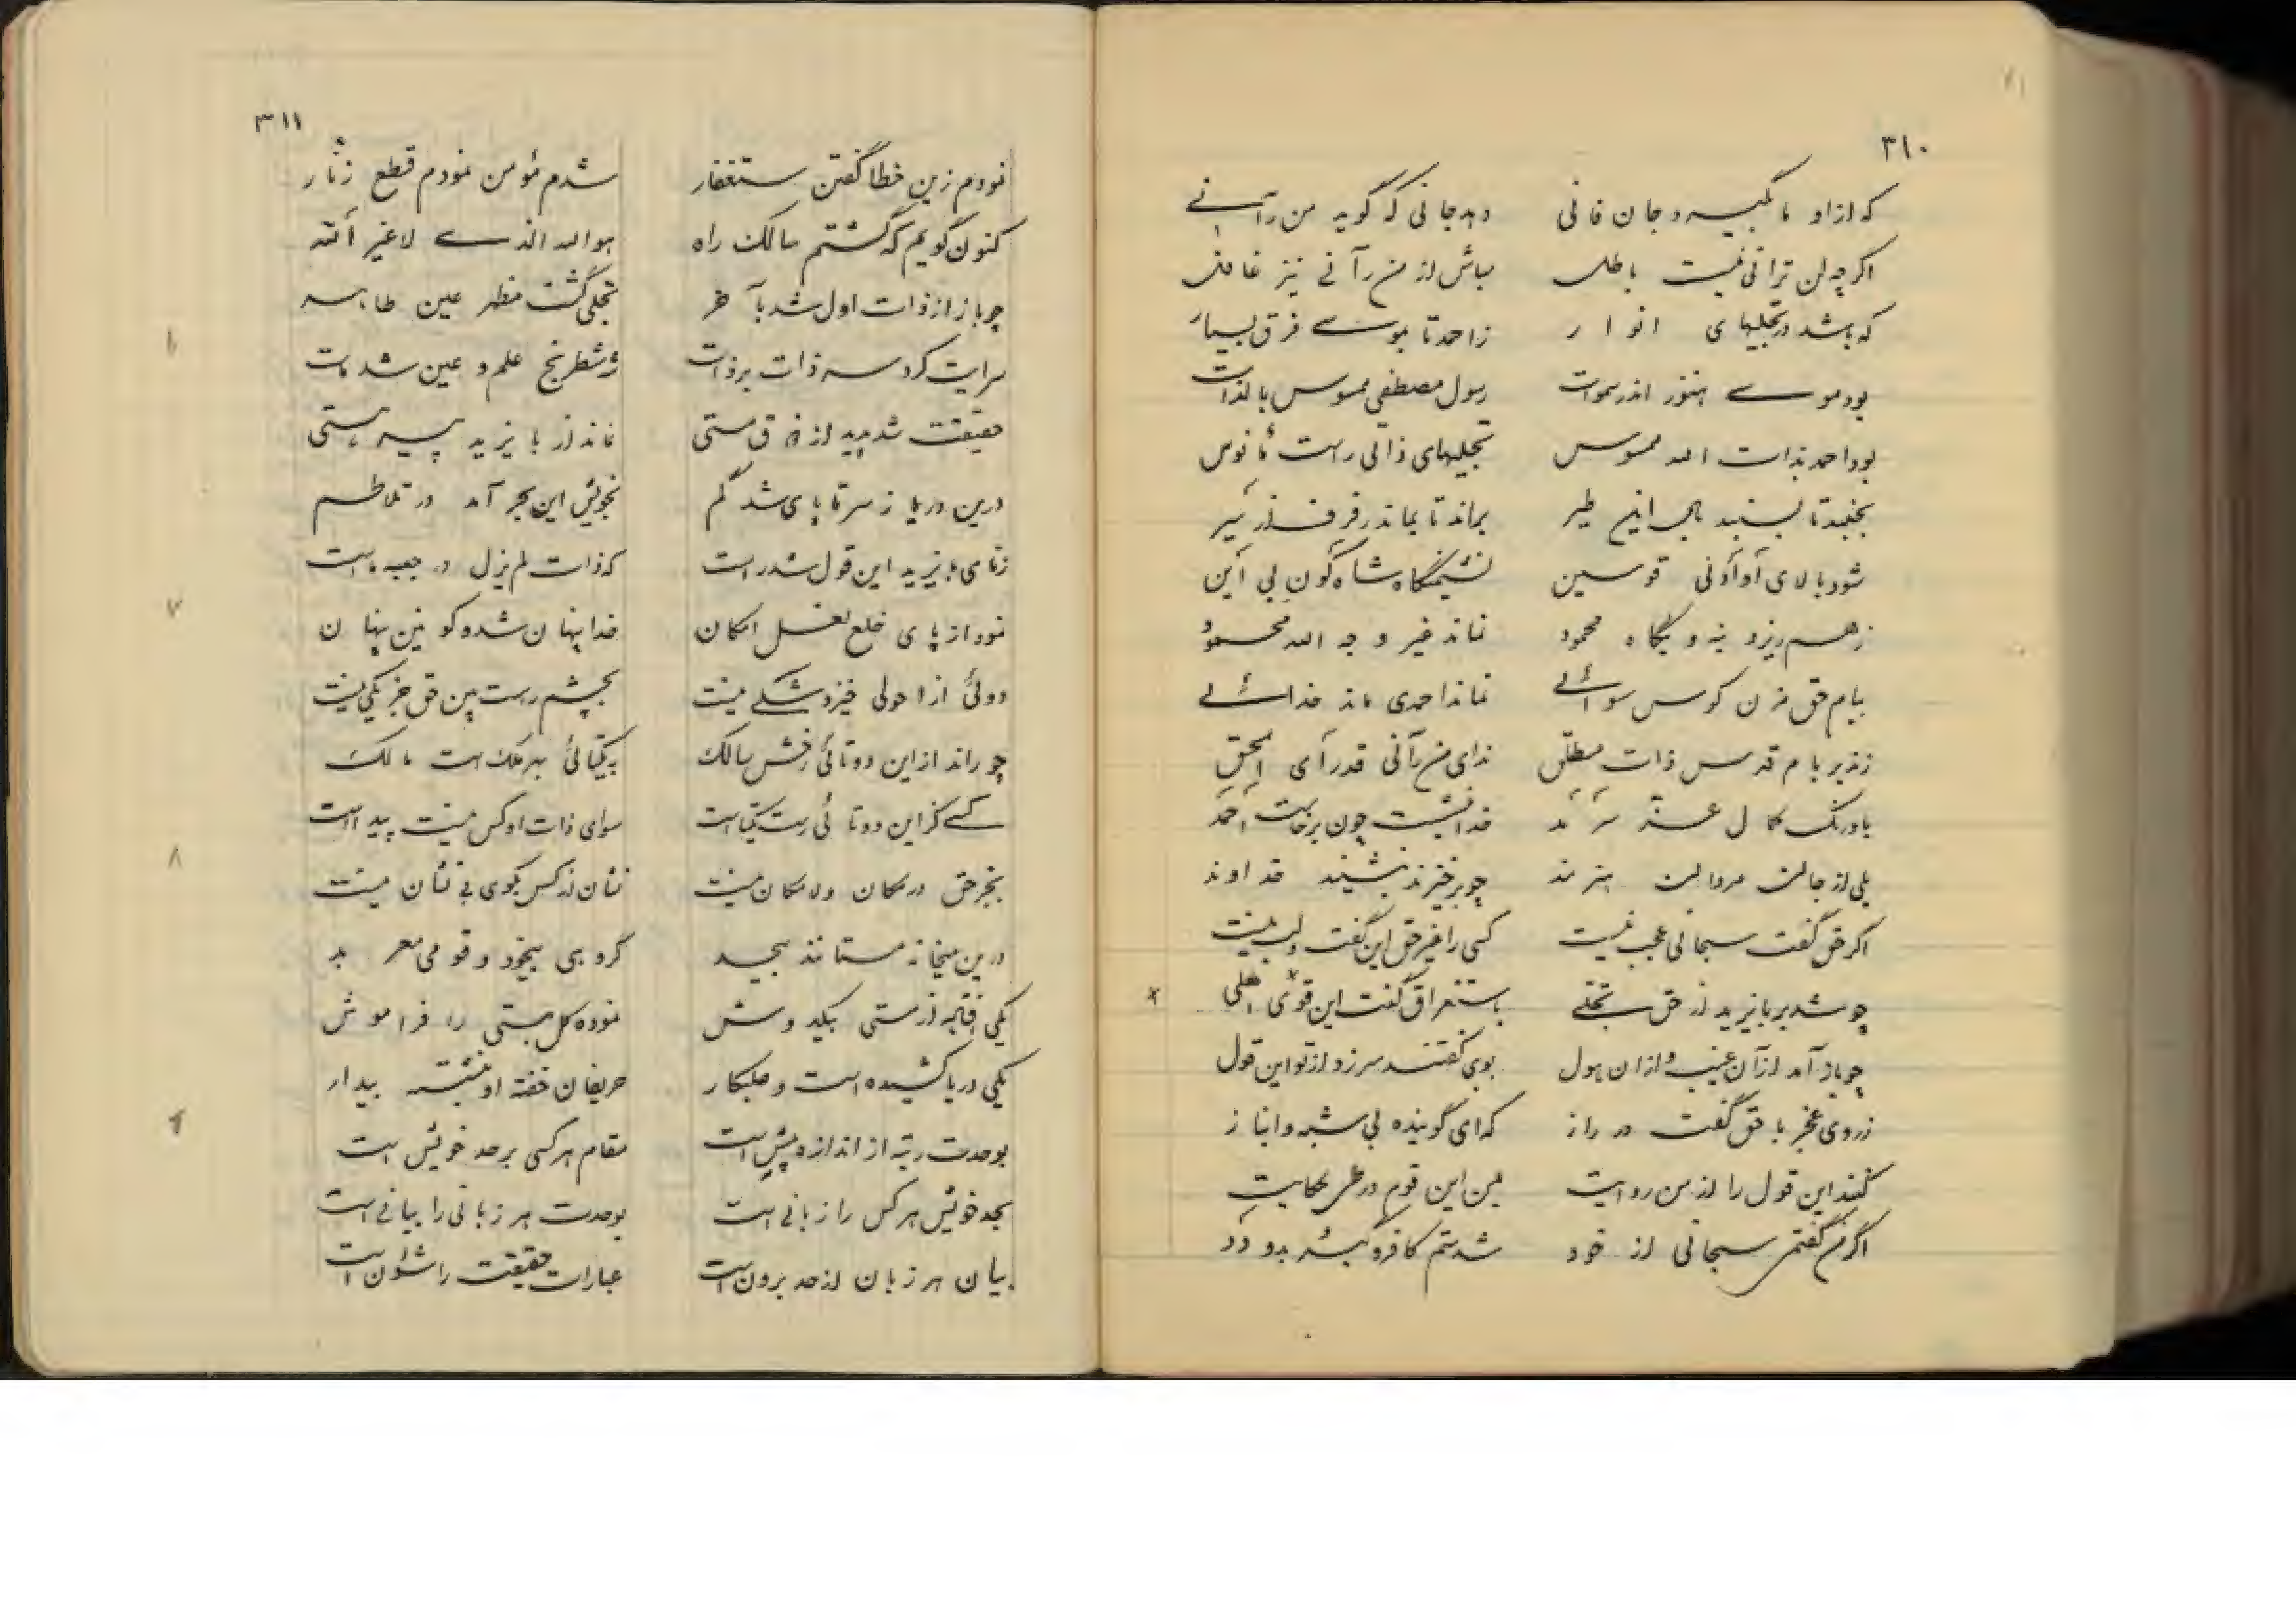 ۳۱۰
که از او ما بگیرد جان فانی دهد جانی که گوید من رآنی
اگرچه لن ترانی نیست باطل مباش از من رآنی نیز غافل
که باشد در تجلیهای انوار ز احمد تا بموسی فرق بسیار
بود موسی هنوز اندر سموات رسول مصطفی ممسوس بالذات
بود احمد بذات الله ممسوس تجلیهای ذاتی راست مأنوس
براند تا بماند رفرف از سیر
شود بالای أو أدنی قوسین نشیمنگاه شاه کون بی أین
نماند غیر وجه الله محمود
ببام حق مزن کوس سوائی نماند احمدی ماند خدائی
زند بر بام قدس ذات مطلق ندای من رآنی قد رأی الحق
باورنگ کمال عز سرمد خدا بنشست چون برخاست احمد
بلی از جا مردان هنرمند چو برخیزند بنشیند خداوند
اگر حق گفت سبحانی عجب نیست کسی را غیر حق این گفت و لب نیست
چو شد بر بایزید از حق تجلی باستغراق گفت این قول اعلی
چو باز آمد از آن غیب و از آن هول بوی گفتند سر زد از تو این قول
ز روی عجز با حق گفت در راز که ای گوینده بی شبه و انباز
کنند این قول را از من روایت من این قوم در عرض حکایت
اگر من گفتم سبحانی از خود شدستم کافر و گبر بدو دد
۳۱۱
نمودم زین خطا گفتن ستغفار شدم مؤمن نمودم قطع زنّار
کنون گویم که گشتم سالک راه هو الله الذی لا غیر الله
چو باز از ذات اول شد بآخر تجلی گشت مظهر عین ظاهر
سرایت کرد سر ذات بر ذات ز شطرنج علم و عین شد مات
حقیقت شد پدید از خرق مستی نماند از بایزید پیر هستی
درین دریا ز سر تا پای شد گم بخویش این بحر آمد در تلاطم
ز نای بایزید این قول شد راست که ذات لم یزل در جبه ماست
نمود از پای خلع نعل امکان خدا پنهان شد و کونین پنهان
دوئی از احولی خیزد شکی نیست بچشم راست بین حق جز یکی نیست
چو راند از این دوتائی رخش سالک بیکتائی بهر ملک است مالک
کسی کز این دوتائی رست یکتاست سوای ذات او کس نیست پیداست
بجز حق در مکان و لامکان نیست نشان از کس بکوی بی نشان نیست
درین میخانه مستانند بیحد گروهی بیخود و قومی معربد
یکی افتد ز مستی بیکد و شش نموده کل هستی را فراموش
یکی دریا کشیده است و طلبکار حریفان خفته او بنشسته بیدار
بوحدت رتبه از اندازه بیش است مقام هر کسی بر حد خویش است
بحد خویش هر کس را زبانی است بوحدت هر زبانی را بیانی است
بیان هر زبان از حد برون است عبارات حقیقت را شئون است